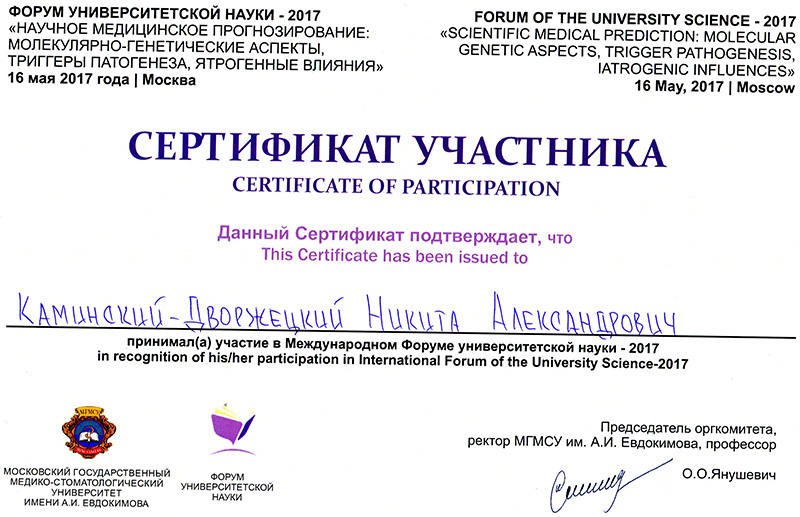 ФОРУМ УНИВЕРСИТЕТСКОЙ НАУКИ - 2017
«НАУЧНОЕ МЕДИЦИНСКОЕ ПРОГНОЗИРОВАНИЕ:
МОЛЕКУЛЯРНО-ГЕНЕТИЧЕСКИЕ АСПЕКТЫ,
ТРИГГЕРЫ ПАТОГЕНЕЗА, ЯТРОГЕННЫЕ ВЛИЯНИЯ»
16 мая 2017 года | Москва
FORUM OF THE UNIVERSITY SCIENCE - 2017
«SCIENTIFIC MEDICAL PREDICTION: MOLECULAR
GENETIC ASPECTS, TRIGGER PATHOGENESIS,
IATROGENIC INFLUENCES»
16 May, 2017 | Moscow
СЕРТИФИКАТ УЧАСТНИКА
CERTIFICATE OF PARTICIPATION
Данный Сертификат подтверждает, что
This Certificate has been issued to
Каминский-Дворжецкий Никита Александрович
принимал(а) участие в Международном Форуме университетской науки - 2017
in recognition of his/her participation in International Forum of the University Science-2017
МГМСУ
МОСКОВСКИЙ ГОСУДАРСТВЕННЫЙ
МЕДИКО-СТОМАТОЛОГИЧЕСКИЙ
УНИВЕРСИТЕТ
ИМЕНИ А.И. ЕВДОКИМОВА
ФОРУМ
УНИВЕРСИТЕТСКОЙ
НАУКИ
Председатель оргкомитета,
ректор МГМСУ им. А.И. Евдокимова, профессор
О.О.Янушевич